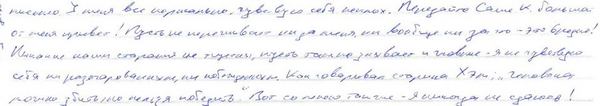 письмо. У меня все нормально. Чувствую себя неплох. Передайте Саше К. большой
от меня привет! Пусть не переживает ни за меня, ни вообще ни за что - это вредно!
наши старания не тщетны, пусть только знает и главное - я не чувствую
себя ни разочарованным, ни побежденным. Как говаривал старина Хэм, "человека
можно убить, но нельзя победить". Вот со мною так же - я никогда не сдаюсь!